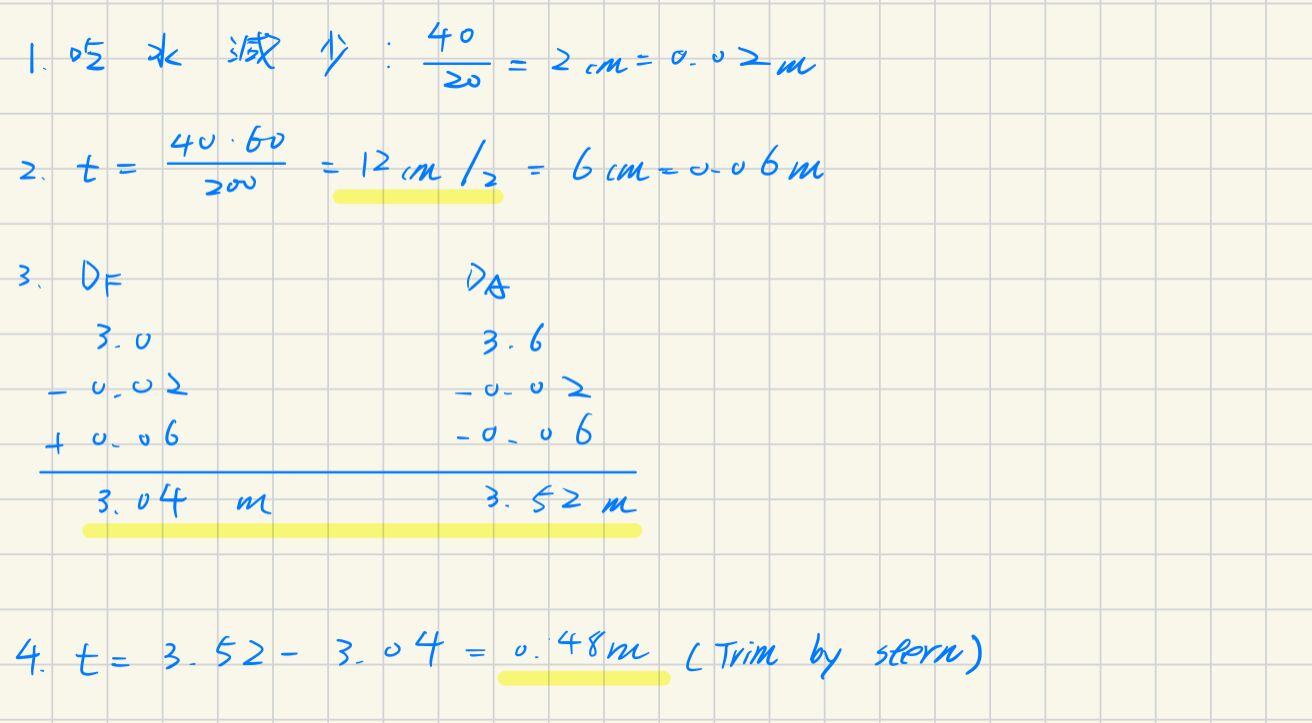 1. 吃 水 減 少 : 40/20 = 2 cm = 0.02 m
2. t = 40·60/200 = 12 cm /2 = 6 cm = 0.06 m
3. DF DA
3.0 3.6
- 0.02 - 0.02
+ 0.06 - 0.06
3.04 m 3.52 m
4. t = 3.52 - 3.04 = 0.48m (Trim by stern)